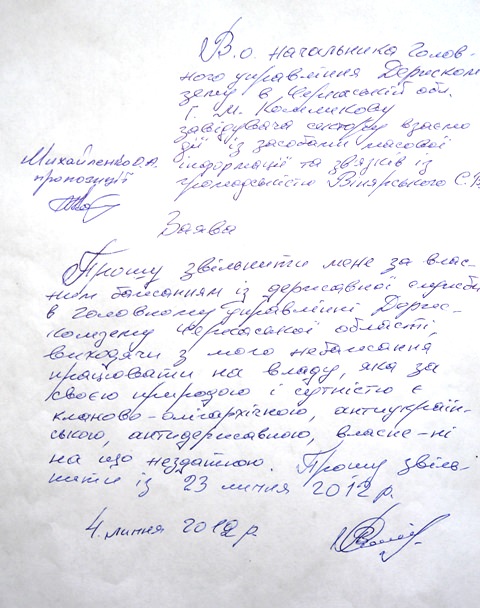 В.о. начальника Голов-
ного управління Держком
зему в Черкаській обл.
Г. М. Колмикову
завідувача сектору взаємо
дії із засобами масової
інформації та звязків із
громадськістю Вінярського С.В
Михайленко О.А.
пропозиції
Заява
Прошу звільнити мене за влас-
ним бажанням із державної служби
в Головному управлінні Держ-
комзему Черкаської області,
виходячи з мого небажання
працювати на владу, яка за
своєю природою і сутністю є
кланово-олігархічною, антиукраїн-
ською, антидержавною, власне-ні
на що нездатною. Прошу звіль-
нити із 23 липня 2012 р.
4 липня 2012 р.